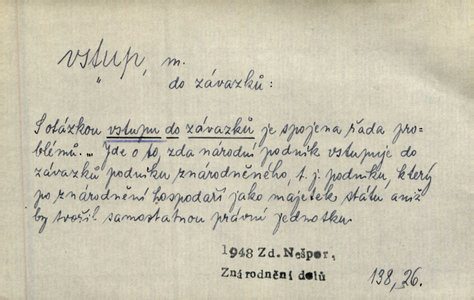 vstup, m.
" do závazků:
S otázkou vstupu do závazků je spojena řada pro-
blémů.„ Jde o to, zda národní podnik vstupuje do
závazků podniku znárodněného, t. j. podniku, který
po znárodnění hospodaří jako majetek státu aniž
by tvořil samostatnou právní jednotku.
1948 Zd. Nešpor,
Znárodnění dolů
138, 26.